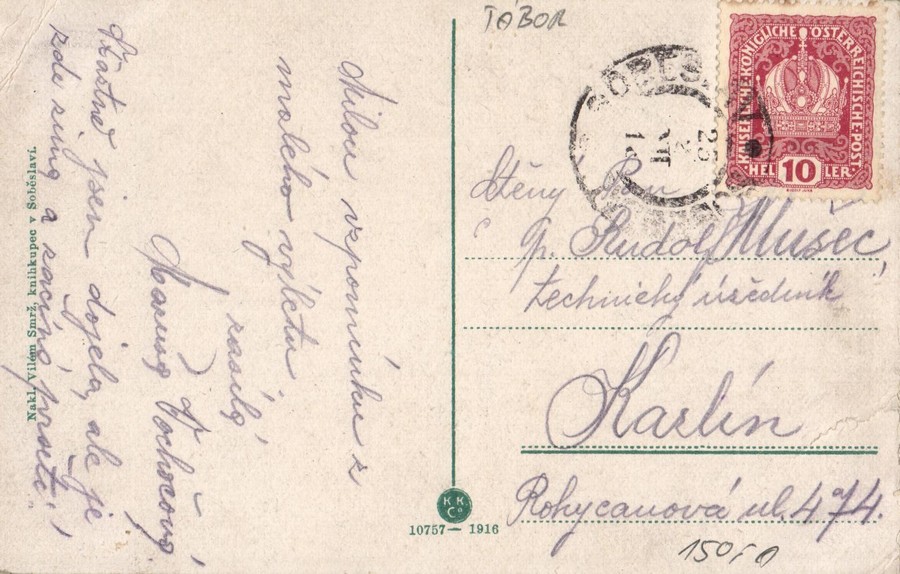 TÁBOR
KAISERLICHE KÖNIGLICHE ÖSTERREICHISCHE POST
HELLER
10
SOBĚSL
25
VII
1
Milou vzpomínku z
malého výletu
zasílá
Šťastně jsem dojela, ale je
zde zima a začíná pršeti!
Ctěný Pan
p. Rudolf Mušec,
technický úředník
Karlín
Rohycanová ul. 474.
Nakl. Vilém Smrž, knihkupec v Soběslavi.
K K
Co
10757 — 1916
150,-